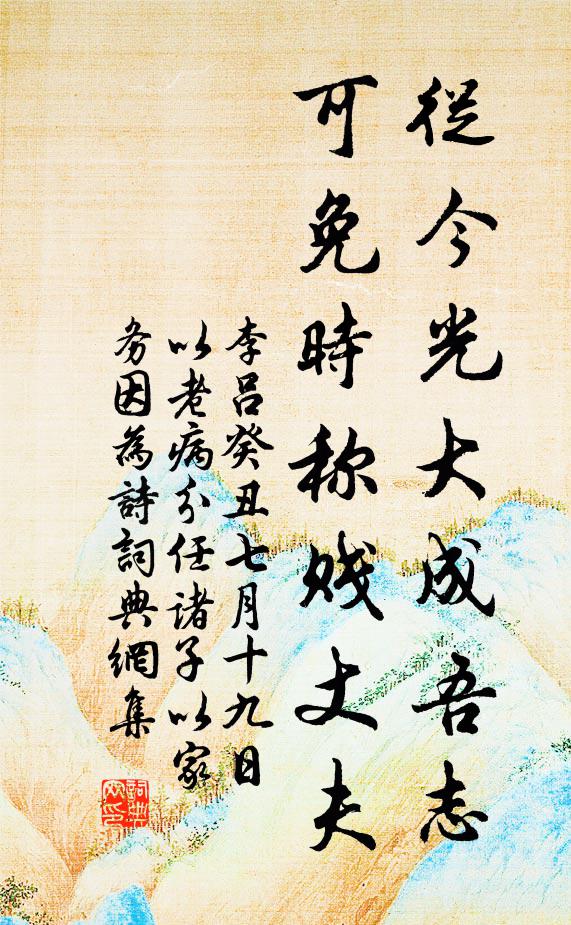 從今光大成吾志
可免時称贱丈夫
李吕癸丑七月十九日
以老病分任諸子以家
务因為詩詞典網集
詞典網印